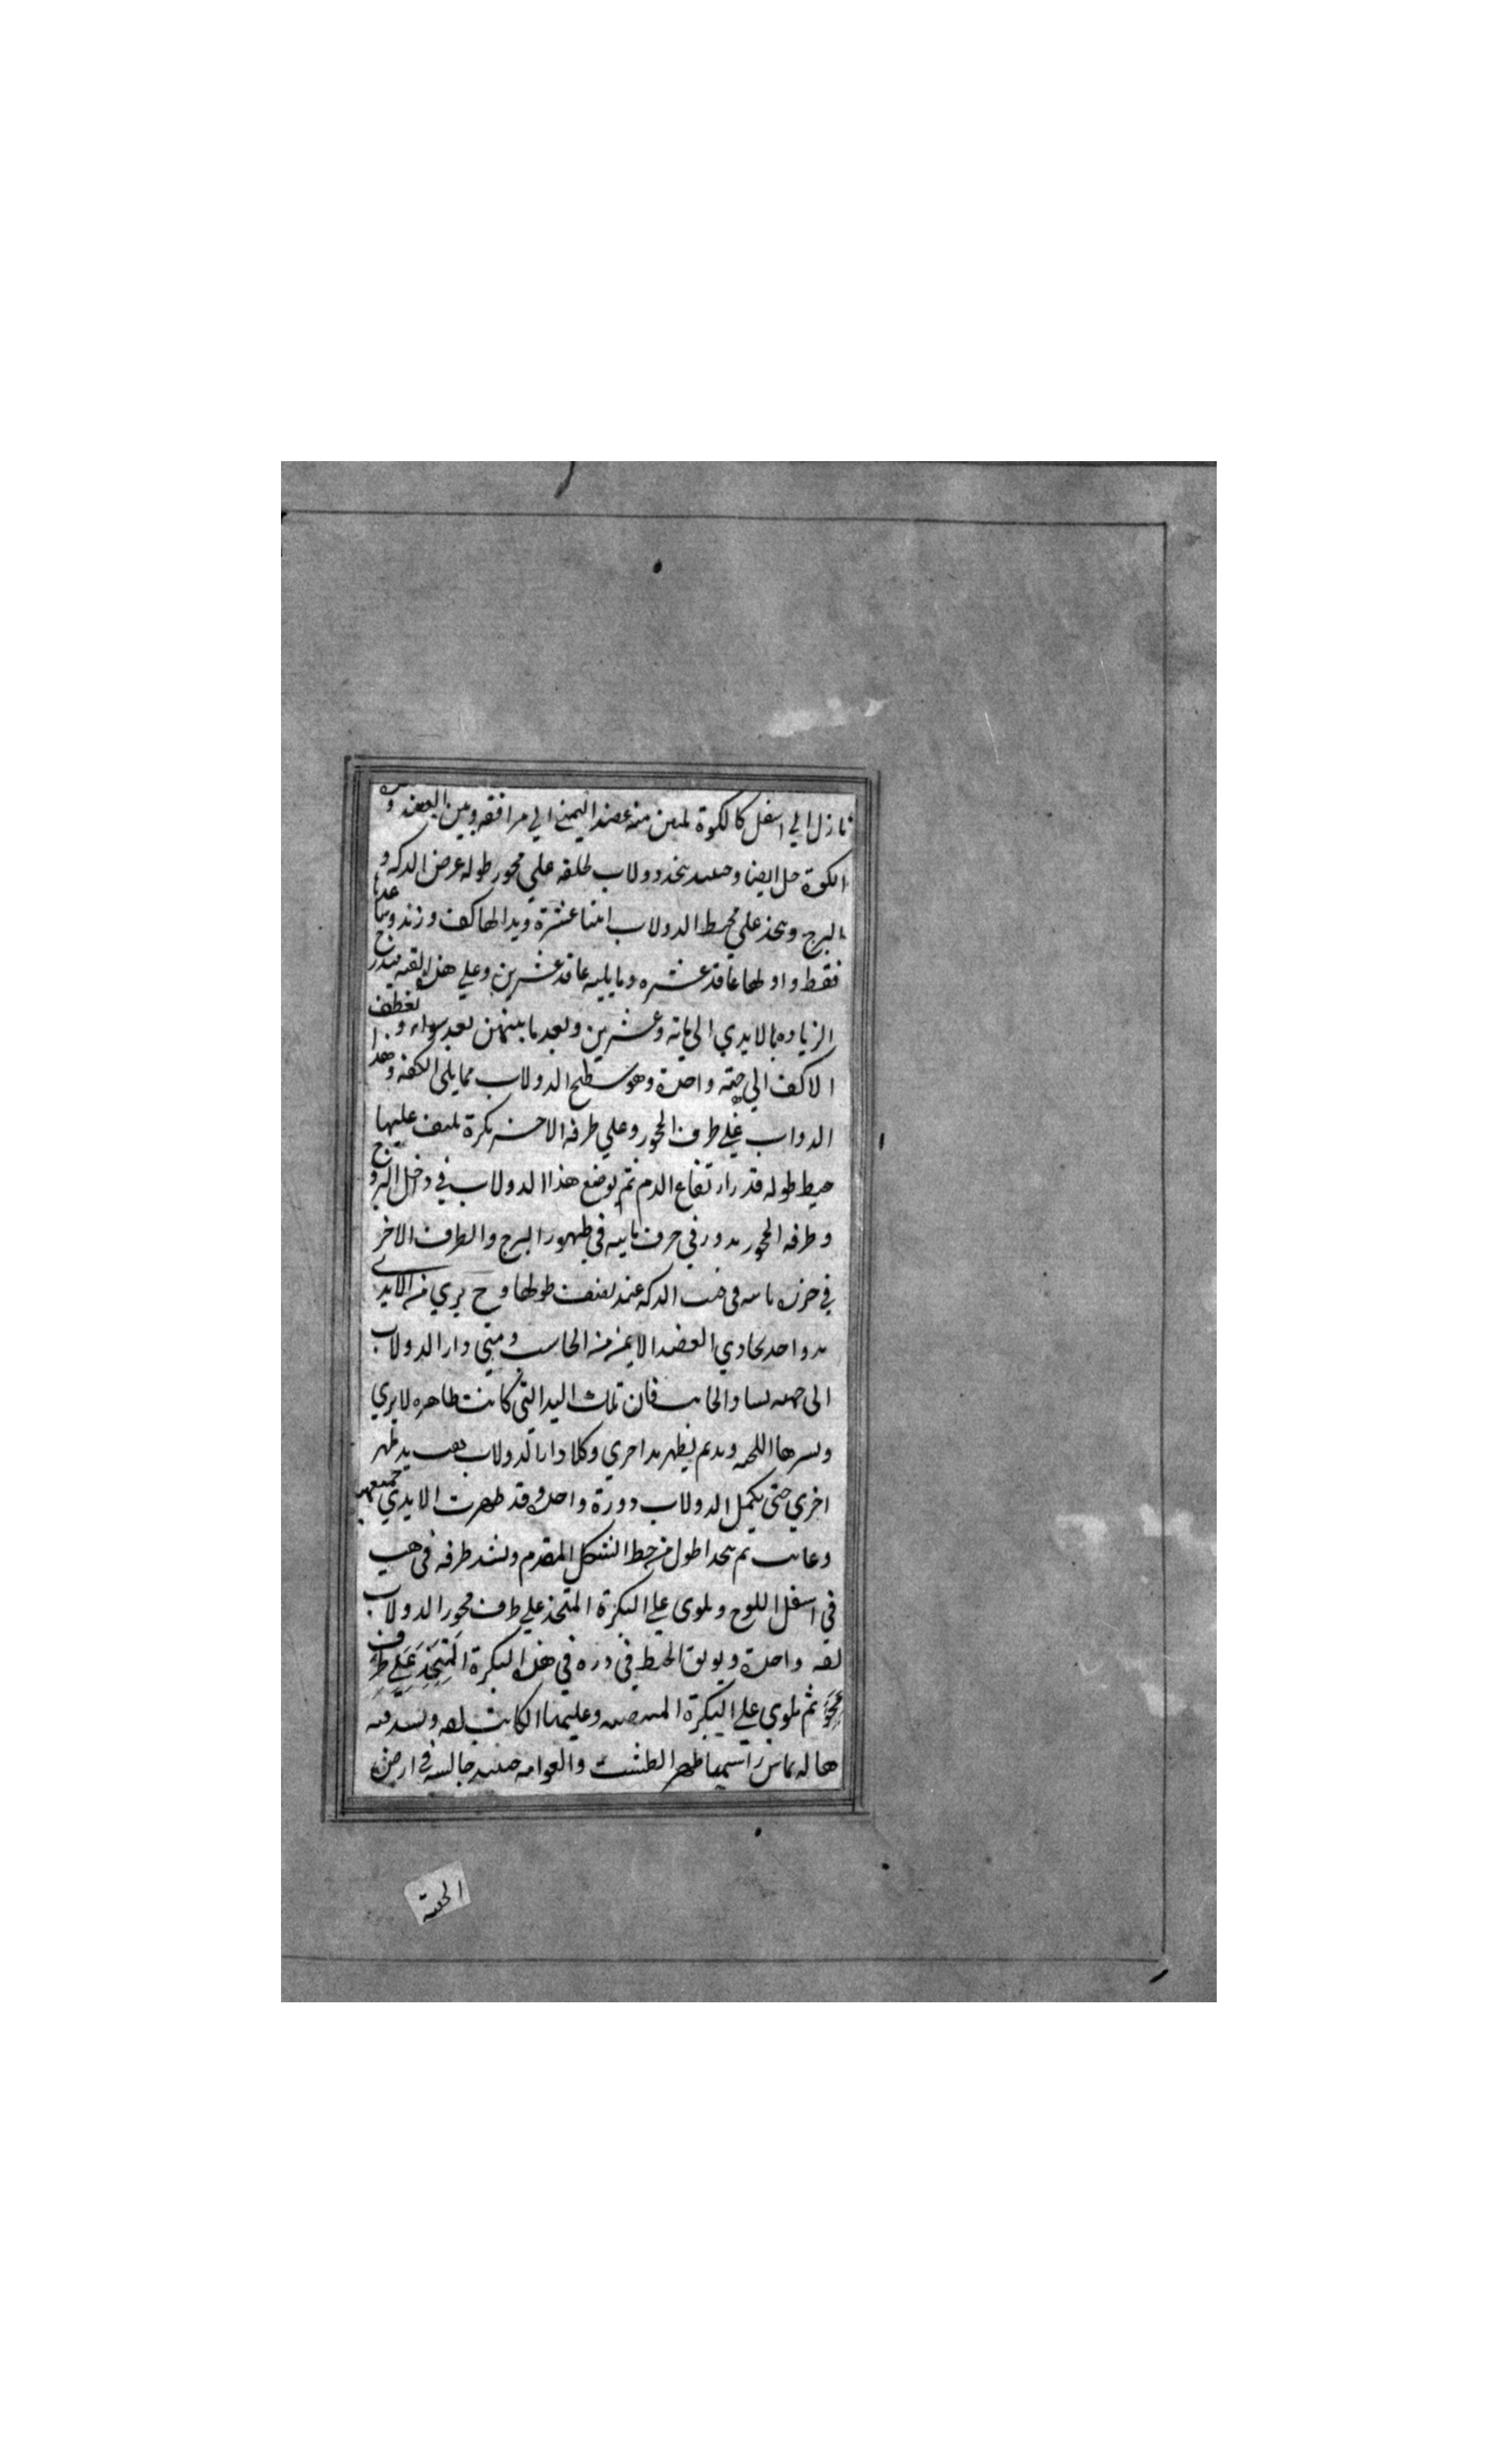 نازل الي اسفل كالكوة لمس منه عضد اليمني الي مرافقه وبين العضد و
الكوة حل ايضا وحينئذ يتخذ دولاب طلقه علي محور طوله عرض الدكه و
البرج ويتخذ علي محيط الدولاب اثنا عشرة ويدا لها كف وزند وساعد
فقط واولها عاقد عشره وما يليه عاقد عشرين وعلي هذا القيه فيندرج
الزياده بالايدي الي مائة وعشرين وبعد ما بينهن بعد سواء و تعطف
الاكف الي جهته واحدة وهو سطح الدولاب مما يلي الكفه وهذا
الدواب علي طرف المحور وعلي طرفه الاخر بكرة يلتف عليها
خيط طوله قدر ارتفاع الدم ثم يوضع هذا الدولاب في داخل البرج و
وطرفه المحور يدور في حرف ثابته في ظهور البرج والطرف الاخر
في خزه الدكه عند نصف طولها وح يري من الايدي
يد واحد تحاذي العضد الايمن من الحاسب ومتي دار الدولاب
الي جهه يسار الحاسب فان تلك اليد التي كانت ظاهره لا يري
ويسرها اللحمه ويدم يظهر يد اخري وكلما دار الدولاب يد ظهر
اخري حتي يكمل الدولاب دورة واحده وقد ظهرت الايدي جميعهن
وغابت ثم يتخذ اطول من خيط الشكل المقدم ويشد طرفه في
في اسفل اللوح ويلوي علي البكرة المتخذ علي طرف محور الدولاب
لفه واحدة ويوثق الخيط في دره في هذه البكرة المتخذ علي طرف
محور ثم يلوي علي البكرة وعليها الكاتب لفه ويشد فيه
هاله يماس راسها ظهر الطشت والعوامه حينئذ جالسه في ارض
الحقة